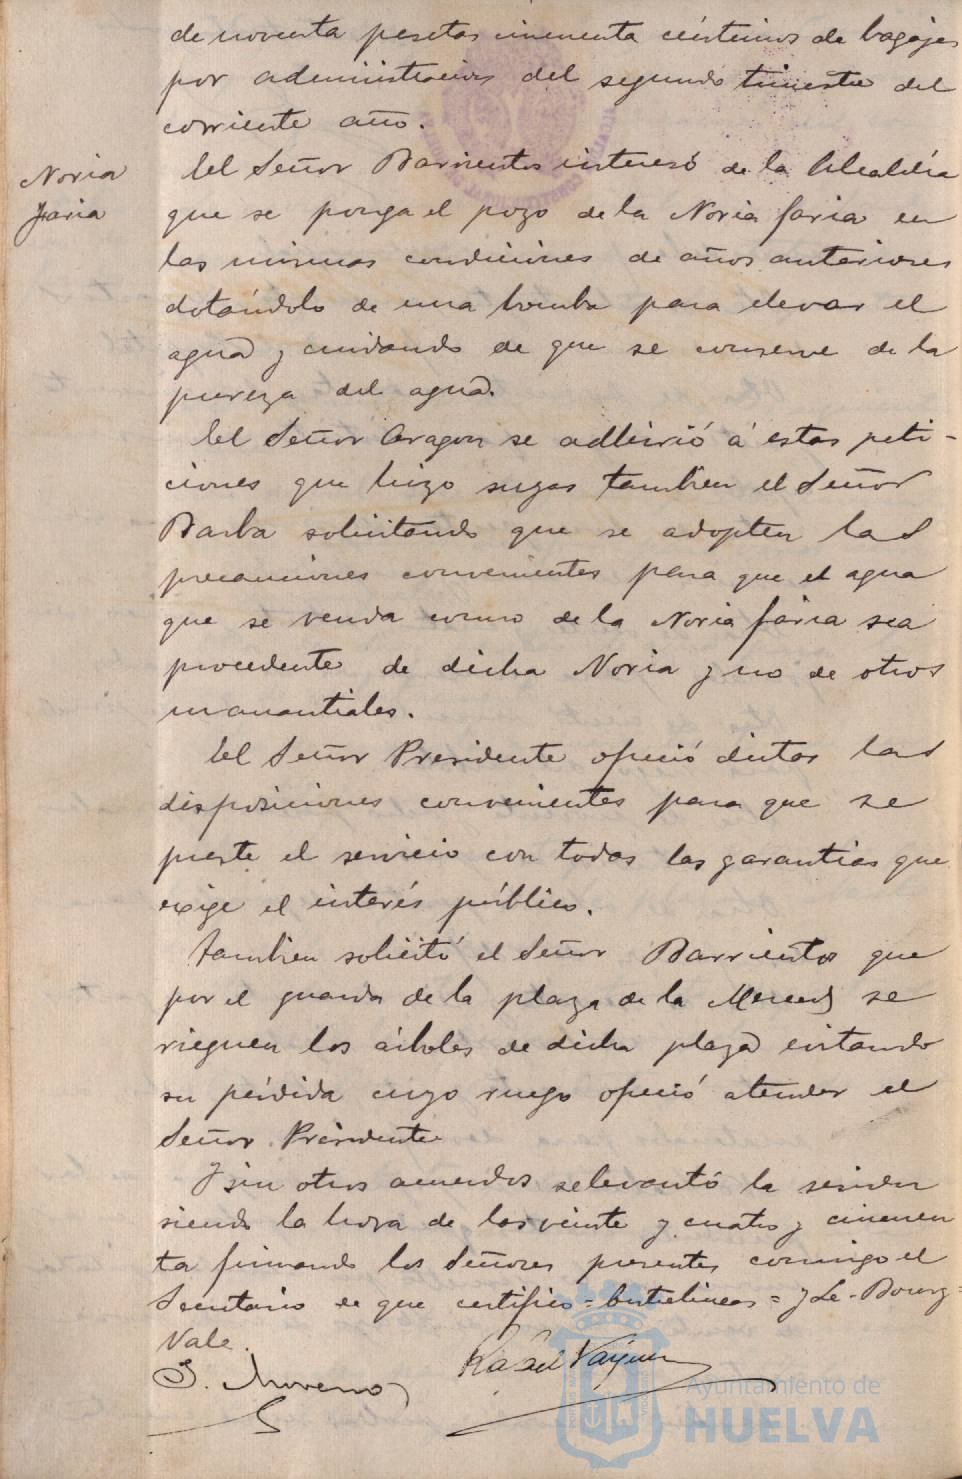 de noventa pesetas cincuenta céntimos de bagajes
por administracion del segundo trimestre del
corriente año.
Noria
Jaria
El Señor Barrientos interesó de la Alcaldía
que se ponga el pozo de la Noria Jaria en
las mismas condiciones de años anteriores
dotándolo de una bomba para elevar el
agua y cuidando de que se conserve de la
pureza del agua.
El Señor Aragon se adhirió á estas peti-
ciones que hizo suyas tambien el Señor
Barba solicitando que se adopten las
precauciones convenientes para que el agua
que se venda como de la Noria Jaria sea
procedente de dicha Noria y no de otros
manantiales.
El Señor Presidente ofreció dictar las
disposiciones convenientes para que se
preste el servicio con todas las garantias que
exige el interés público.
Tambien solicitó el Señor Barrientos que
por el guarda de la plaza de la Merced se
rieguen los árboles de dicha plaza evitando
su pérdida cuyo ruego ofreció atender el
Señor Presidente
Y sin otros acuerdos se levantó la sesion
siendo la hora de las veinte y cuatro y cincuen
ta firmando los Señores presentes conmigo el
Secretario de que certifico = Entrelineas = y Le-Bourg =
Vale.
J. Moreno
Rafael Vazquez
Ayuntamiento de
HUELVA